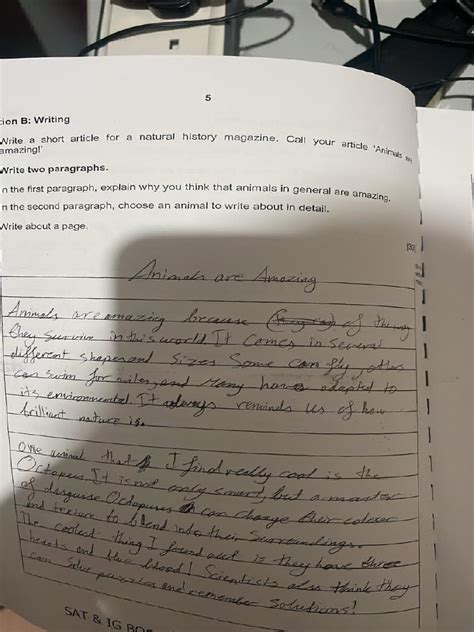 5
ion B: Writing
Write a short article for a natural history magazine. Call your article 'Animals are
amazing!'
Write two paragraphs.
n the first paragraph, explain why you think that animals in general are amazing.
n the second paragraph, choose an animal to write about in detail.
Write about a page.
[30]
Animals are Amazing
Animals are amazing because of the way
they survive in this world It Comes in several
different shapes and Sizes Some can fly others
can swim for miles, and Many have adapted to
its environmental It always reminds us of how
brilliant nature is.
One animal that I find really cool is the
Octopus. It is not only smart, but a master
of disguise Octopuses can change their colour
and texture to blend into their surroundings.
The coolest thing I found out is they have three
hearts and blue blood! Scientists also think they
can solve puzzles and remember solutions!
SAT & IG